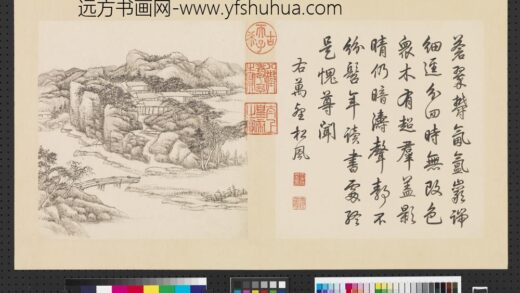 远方书画网-www.yfshuhua.com
蒼翠鬱氤氳巖端
細逕分四時無改色
衆木有超羣蓋影
晴仍暗濤聲靜不
紛髫年讀書處終
是愧尊聞
右萬壑松風